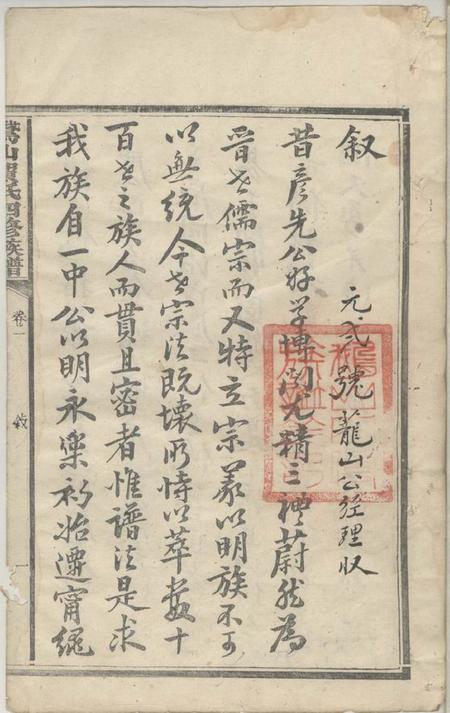 叙
元弍號蘢山公經理收
昔彦先公好學博聞尤精三禮蔚然為
晉世儒宗而又特立宗義以明族不可
以無統今世宗法既壞所恃以萃數十
百世之族人而貫且密者惟譜法是求
我族自一中公以明永樂初始遷甯鄉
賀氏四修族譜
卷一
敘
一